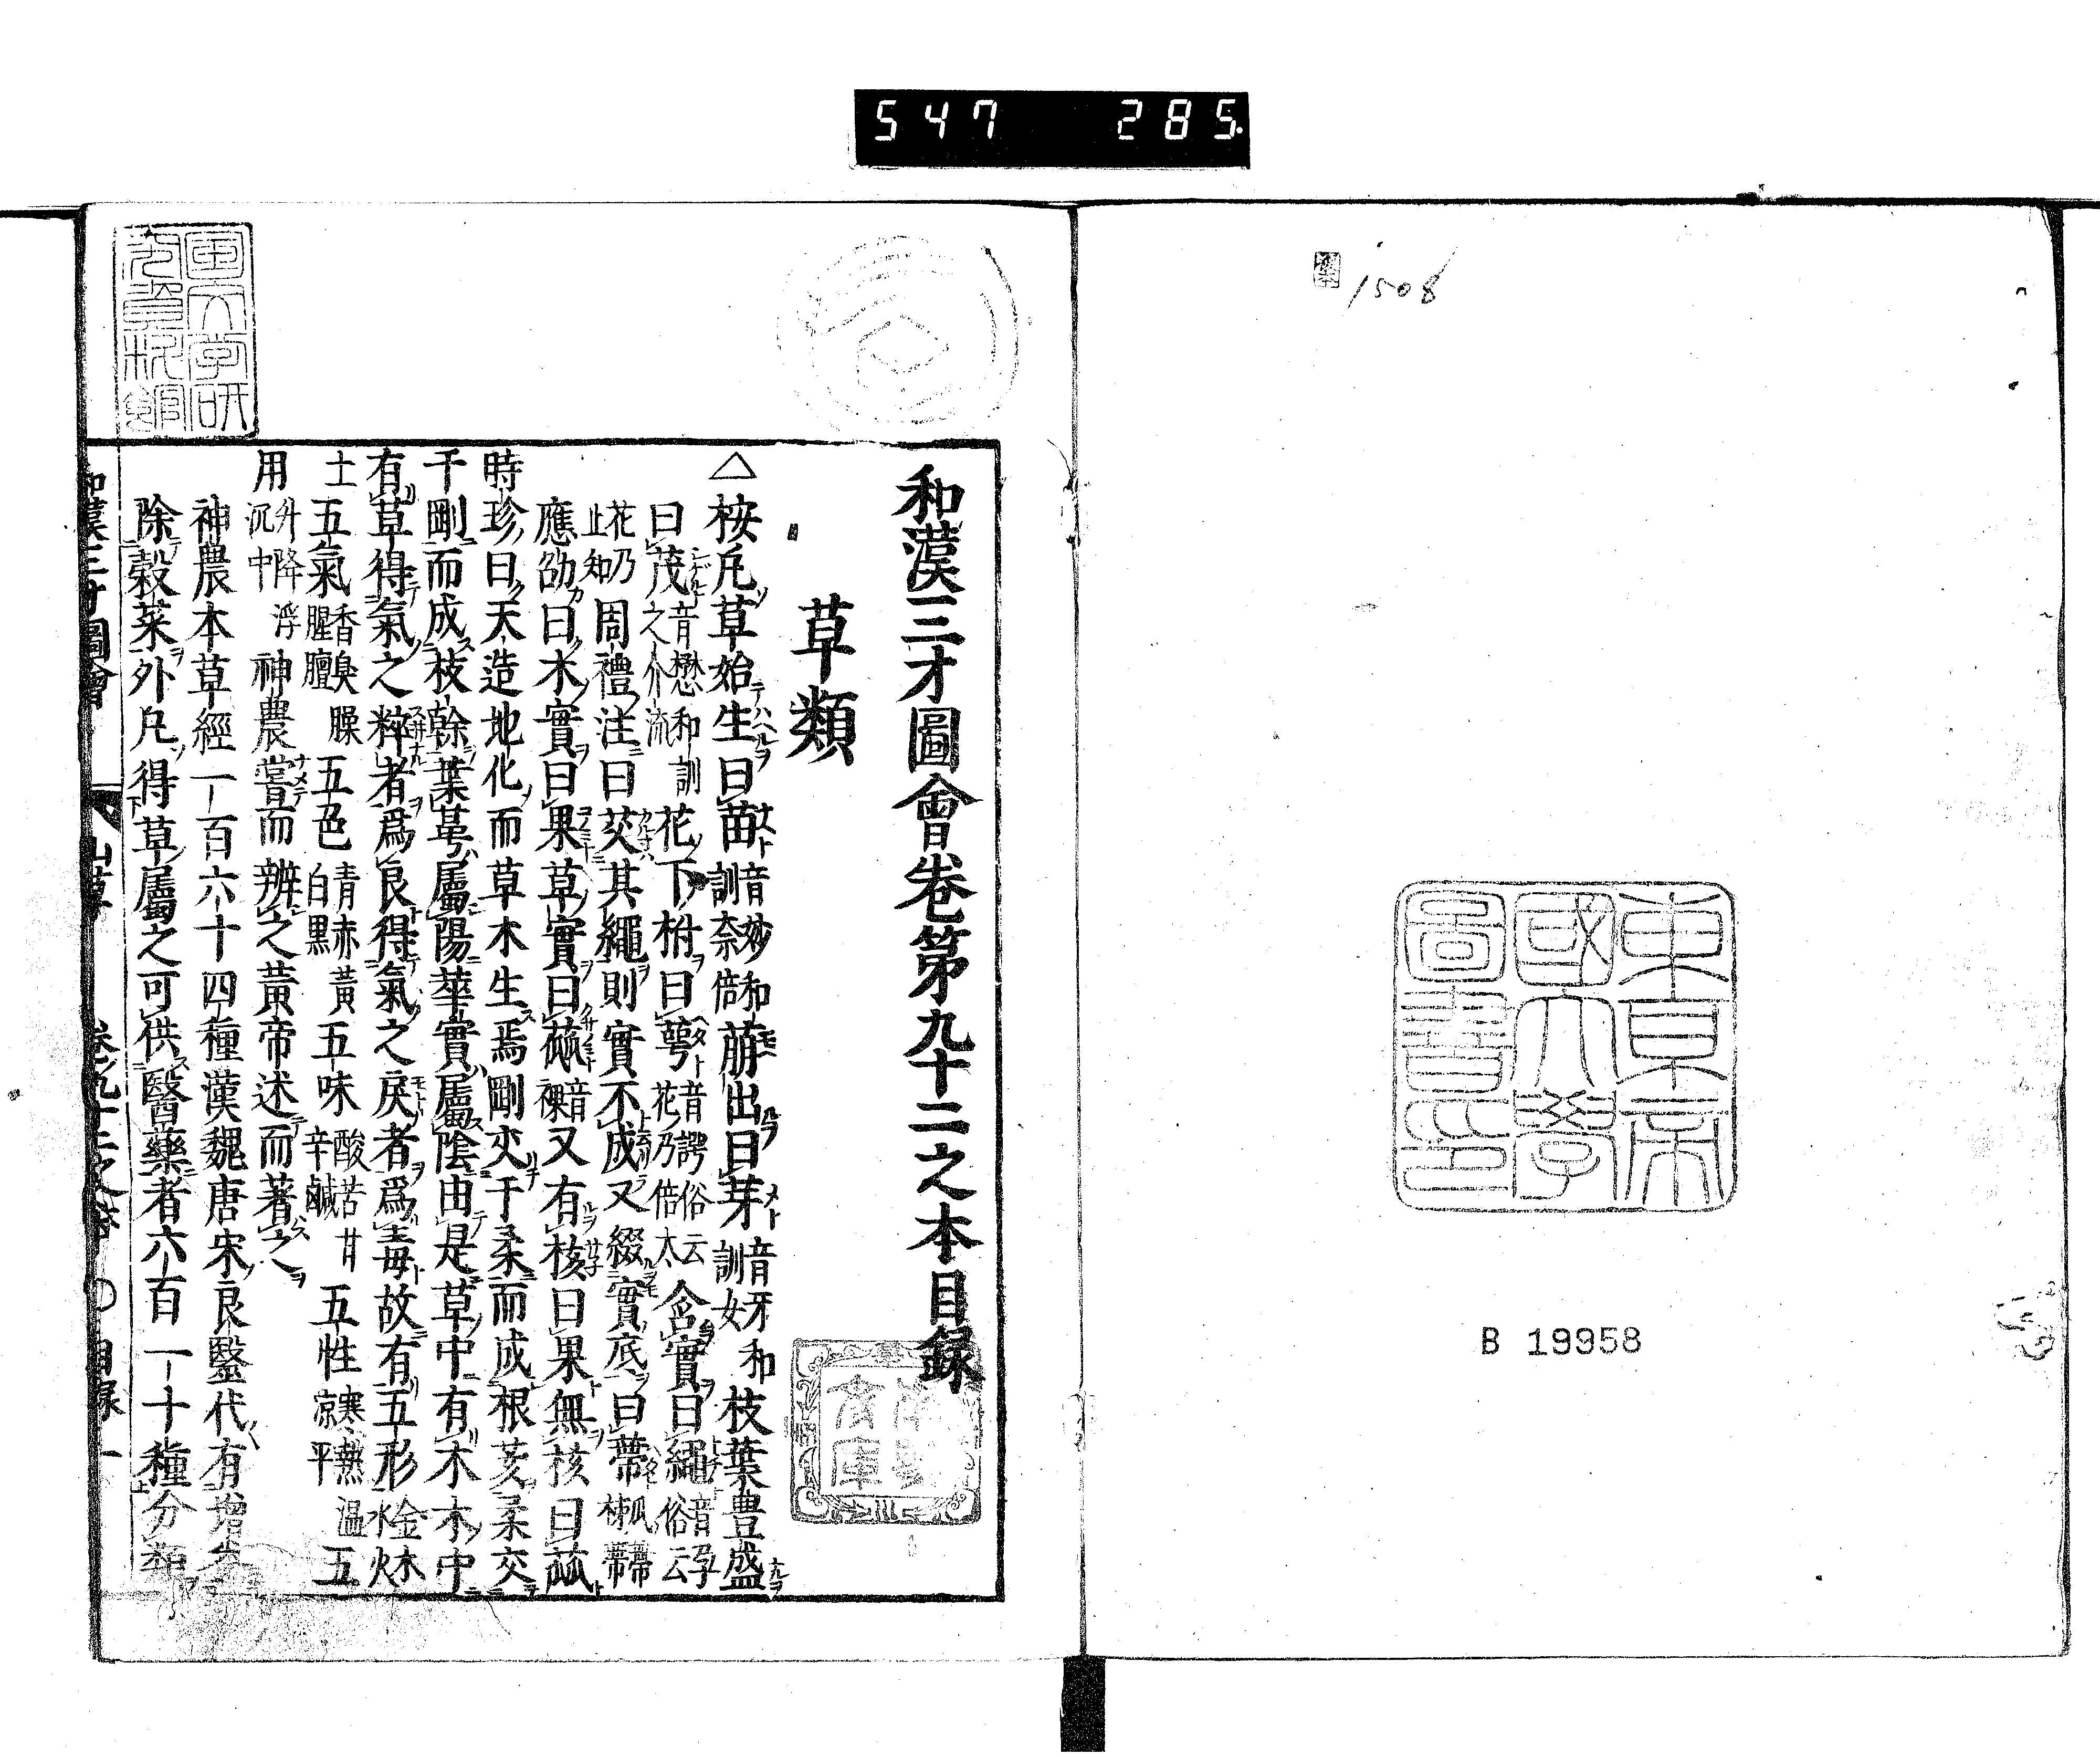 547 285
1508
東京帝
國大學
圖書印
B 19958
和漢三才圖會卷第九十二之本目録
草類
△按凢草始生曰苗音妙和訓奈倍萠出曰芽音牙和訓女枝葉豊盛
曰茂音懋和訓之介流花下柎曰萼音諤俗云花乃倍太含實曰繩音孕俗云
花乃止知周禮注曰芡其繩則實不成又綴實底曰蔕瓜蔕
應劭曰木實曰果草實曰蓏又有核曰果無核曰蓏
時珍曰天造地化而草木生焉剛交于柔而成根荄柔交
于剛而成枝幹葉萼屬陽華實屬陰由是草中有木木中
有草得氣之粹者爲良得氣之戾者爲毒故有五形金木水火
土五氣香臭臊腥膻五色青赤黃白黒五味酸苦甘辛鹹五性寒熱温凉平五
用升降浮沉中神農嘗而辨之黃帝述而著之
神農本草經一百六十四種漢魏唐宋良醫代有增益
除穀菜外凢得草屬之可供醫藥者六百一十種分類
和漢三才圖會 山草 卷ノ九十二之本 〇目録 一
国文学研
究資料館
文庫